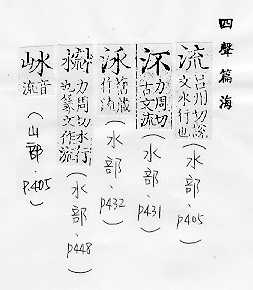 四聲篇海
流 呂州切說文水行也（水部、p405）
力周切古文流（水部、p431）
舊藏作流（水部、p432）
力周切水行也篆文作流（水部、p448）
音流（山部、p405）